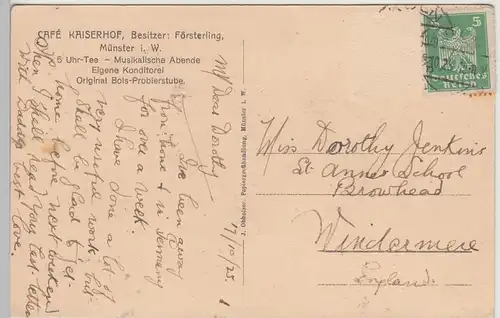 CAFÉ KAISERHOF, Besitzer: Försterling,
Münster i. W.
5 Uhr-Tee – Musikalische Abende
Eigene Konditorei
Original Bols-Probierstube.
17/10/25.
My Dear Dorothy
I've been away
from home & in Germany
for over a week.
I have done a lot of
very useful work but
I shall be glad to get
home before next weekend
when I shall read your last letter
With Daddy's best love.
J. Obbelner, Papiergroßhandlung, Münster i. W.
5
Deutsches
Reich
Miss Dorothy Jenkins
St. Annes School
Browhead
Windermere
England.